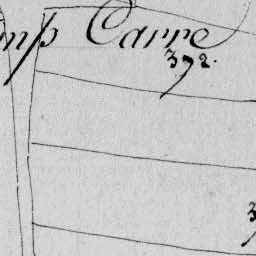 mp Carre
392.
3